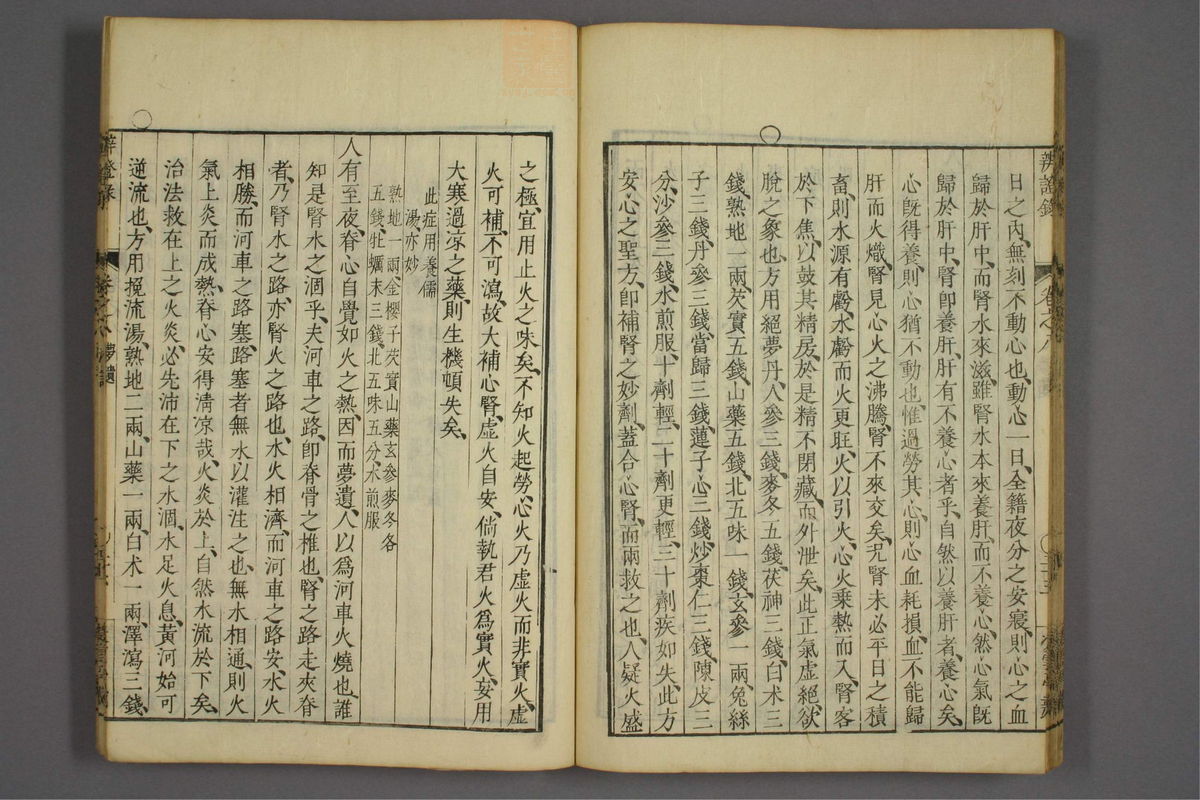 日之內、無刻不動心也、動心一日、全籍夜分之安寢、則心之血
歸於肝中、而腎水來滋、雖腎水本來養肝、而不養心、然心氣旣
歸於肝中、腎卽養肝、肝有不養心者乎、自然以養肝者、養心矣、
心旣得養、則心猶不動也、惟過勞其心、則心血耗損、血不能歸
肝而火熾、腎見心火之沸騰、腎不來交矣、况腎未必平日之積
畜、則水源有虧、水虧而火更旺、火以引火、心火乗熱而入腎客
於下焦、以鼓其精房、於是精不閉藏、而外泄矣、此正氣虛絕、欲
脫之象也、方用絕夢丹、人參三錢、麥冬五錢、茯神三錢、白术三
錢、熟地一兩、芡實五錢、山藥五錢、北五味一錢、玄參一兩、兔絲
子三錢、丹參三錢、當歸三錢、蓮子心三錢、炒棗仁三錢、陳皮三
分、沙參三錢、水煎服、十劑輕、二十劑更輕、三十劑疾如失、此方
安心之聖方、卽補腎之妙劑、蓋合心腎、而兩救之也、人疑火盛
之極、宜用止火之味矣、不知火起勞心、火乃虛火、而非實火、虛
火可補、不可瀉、故大補心腎、虛火自安、倘執君火爲實火、妄用
大寒過凉之藥、則生機頓失矣、
此症用養儒
湯、亦妙
熟地一兩、金櫻子芡實山藥玄參麥冬各
五錢、牡蠣末三錢、北五味五分、水煎服
人有至夜、脊心自覺如火之熱、因而夢遺、人以爲河車火燒也、誰
知是腎水之涸乎、夫河車之路、卽脊骨之椎也、腎之路走夾脊
者、乃腎水之路、亦腎火之路也、水火相濟、而河車之路安、水火
相勝、而河車之路塞、路塞者無水以灌注之也、無水相通、則火
氣上炎而成熱、脊心安得淸凉哉、火炎於上、自然水流於下矣、
治法救在上之火炎、必先沛在下之水涸、水足火息、黃河始可
逆流也、方用挽流湯、熟地二兩、山藥一兩、白术一兩、澤瀉三錢、